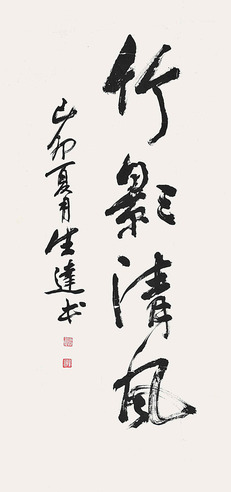 竹影清风
己卯夏月生達书